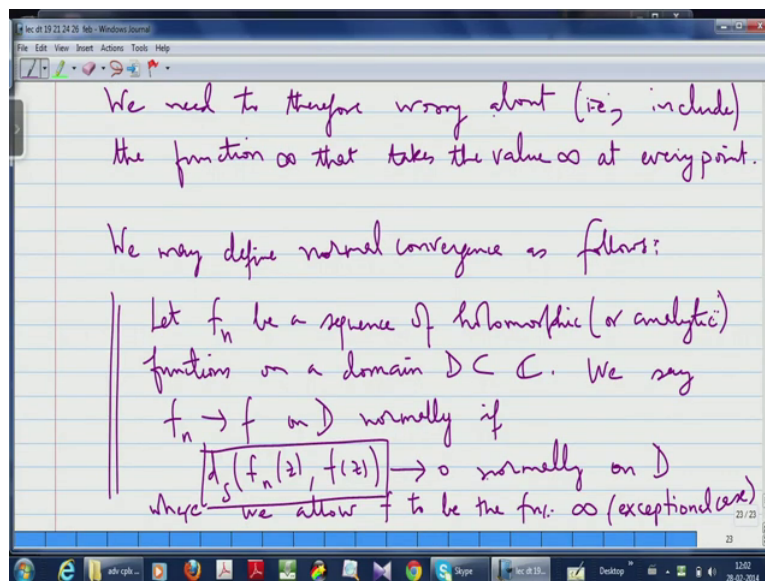 lec dt 19 21 24 26 feb - Windows Journal
File Edit View Insert Actions Tools Help
We need to therefore worry about (i.e., include)
the function ∞ that takes the value ∞ at every point.
We may define normal convergence as follows:
Let fₙ be a sequence of holomorphic (or analytic)
functions on a domain D ⊂ ℂ. We say
fₙ → f on D normally if
d_s(fₙ(z), f(z)) → 0 normally on D
where we allow f to be the fnc. ∞ (exceptional case)
23 / 23
23
adv cplx ...
Skype
lec dt 19...
Desktop
12:02
28-02-2014